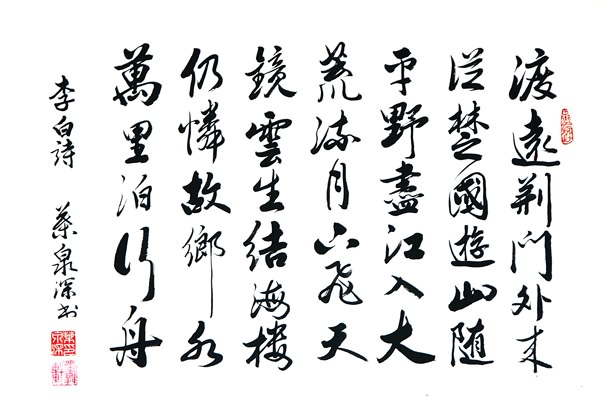 渡遠荆門外来
從楚國遊山随
平野盡江入大
荒流月下飛天
鏡雲生結海楼
仍憐故鄉水
萬里泊行舟
李白詩 葉泉深书